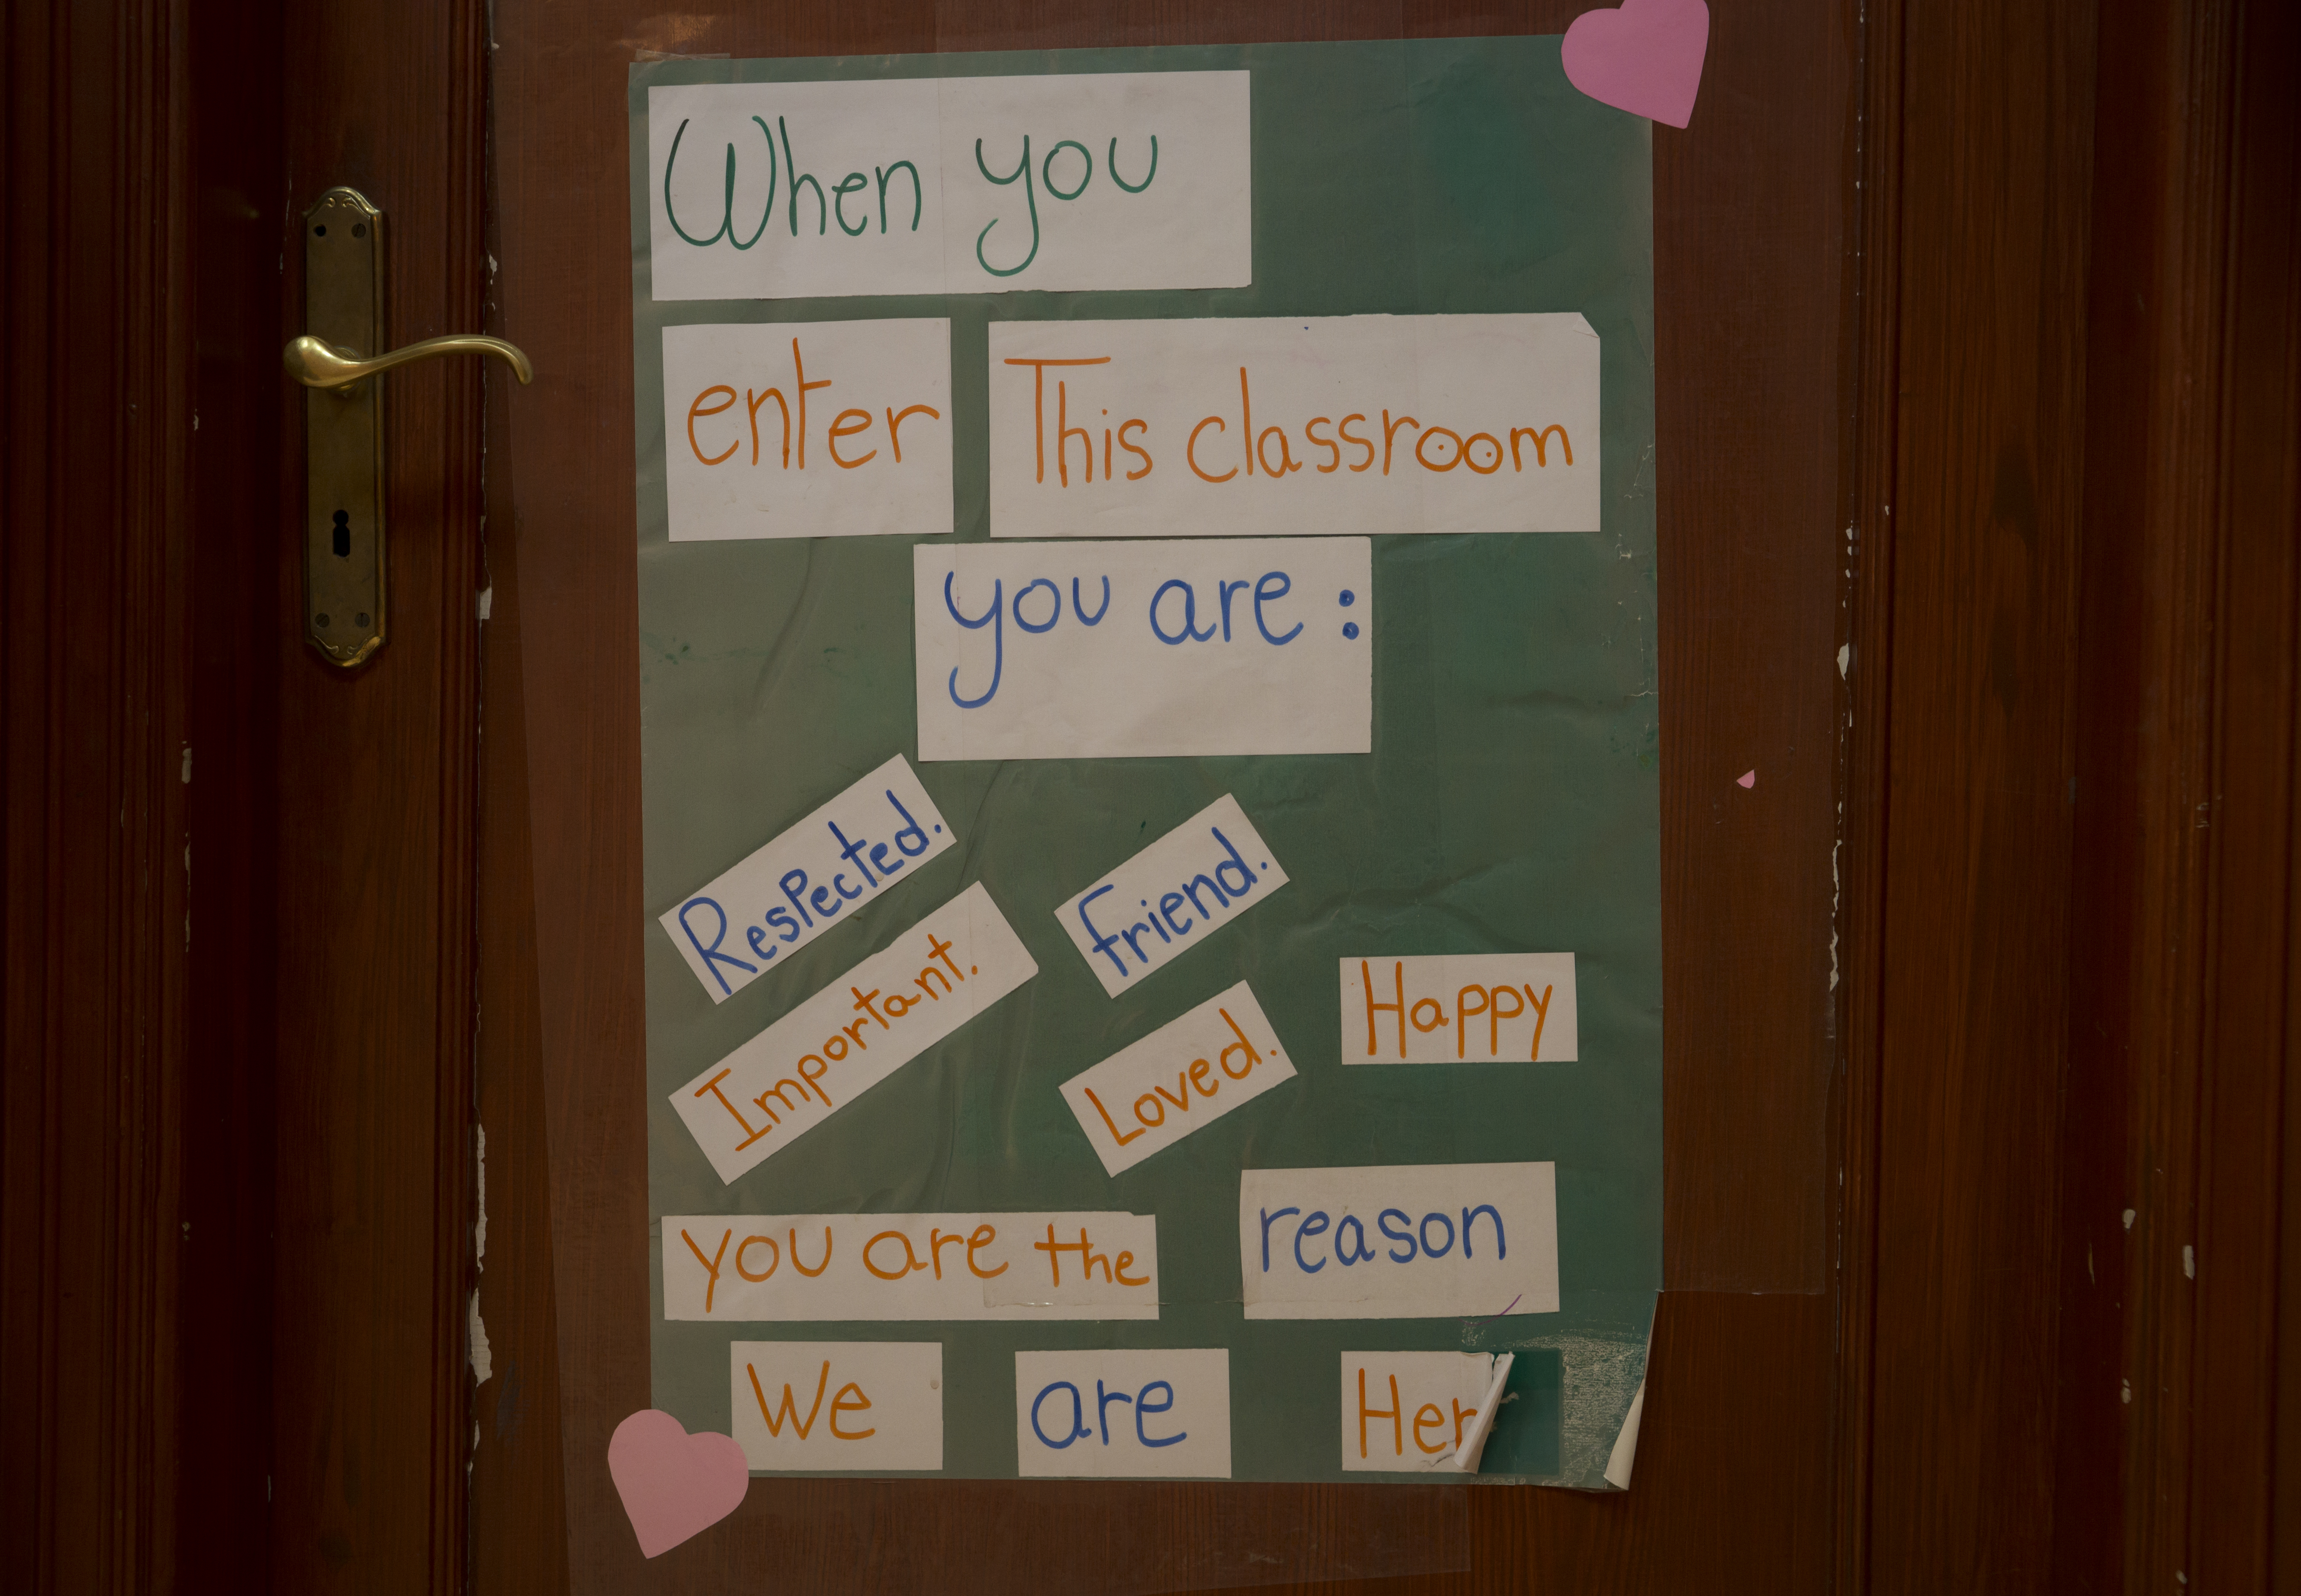 When you
enter This classroom
you are :
Respected.
Important.
friend.
Loved.
Happy
you are the reason
We are Her